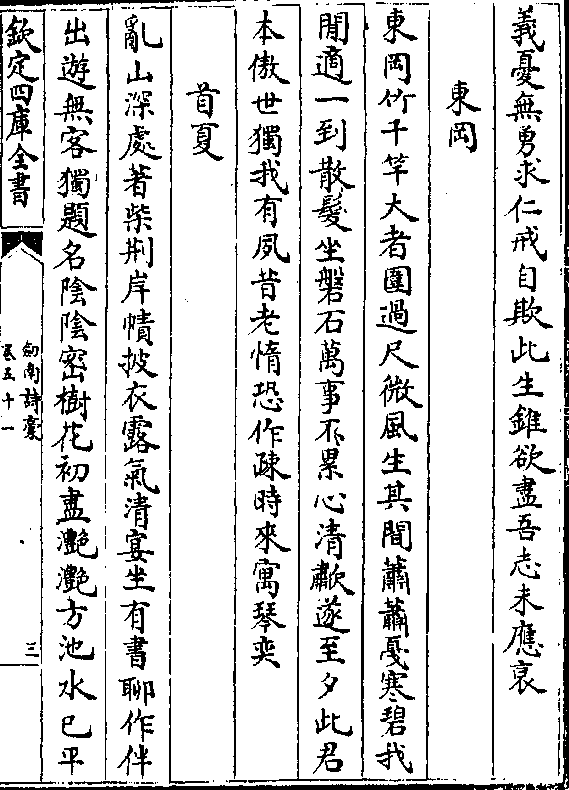 義憂無勇求仁戒自欺此生雖欲盡吾志未應衰
東岡
東岡竹千竿大者圍過尺微風生其間蕭蕭戛寒碧我
閒適一到散髮坐磐石萬事不累心清歗遂至夕此君
本傲世獨我有夙昔老惰恐作疎時來寓琴奕
首夏
亂山深處著柴荆岸幘披衣露氣清宴坐有書聊作伴
出遊無客獨題名陰陰密樹花初盡灔灔方池水已平
欽定四庫全書
劍南詩稾
卷五十一
三